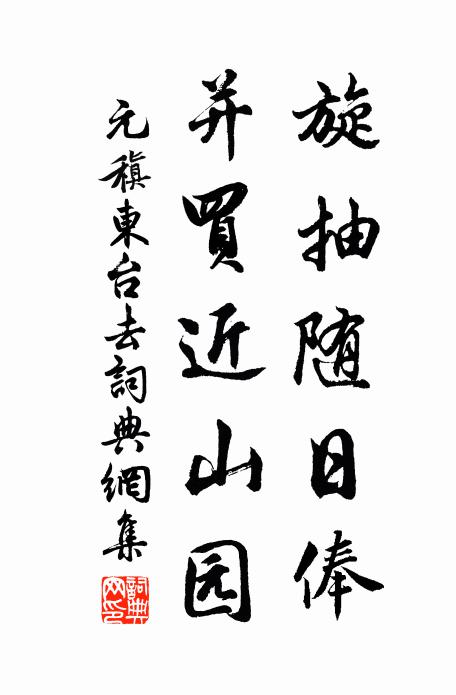 旋抽随日俸
并買近山园
元稹東台去詞典網集
詞典
网印